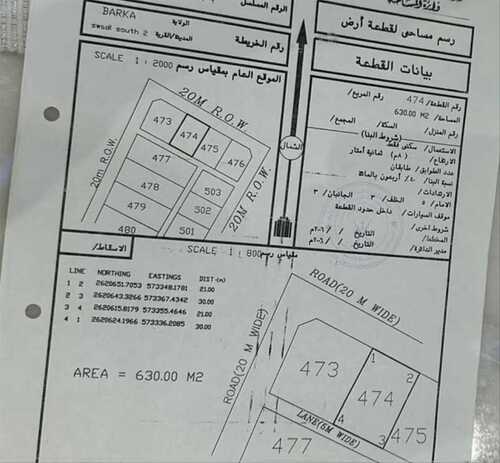 رسم مساحى لقطعة أرض
بيانات القطعة
رقم القطعة/ 474 رقم المربع/
المساحة/ 630.00 M2
رقم المنزل/ السكة/ المجمع/
(شروط البنا)
الاستعمال/ سكنى فقط
الارتفاع/ (٨م) ثمانية أمتار
عدد الطوابق/ طابقان
نسبة البنا/ ٤٠ أربعون بالمائة
الارتدادات/
الامام/ ٥ الخلف/ ٣ الجانبان/ ٣
موقف السيارات/ داخل حدود القطعة
شروط اخرى/
المخطط/ التاريخ / /٢٠٦م
مدير الدائرة/ التاريخ / /٢٠٦م
رقم المسلسل
BARKA
الولاية
swadi south 2
المدينة/القرية
رقم الخريطة
الموقع العام بمقياس رسم SCALE 1:2000
20M R.O.W
20m R.O.W
20M R.O.W
473
474
475
476
477
478
479
480
503
502
501
الشمال
الاسقاط/
مقياس رسم SCALE 1:800
LINE NORTHING EASTINGS DIST-(m)
1 2 2620651.7053 573348.1781 21.00
2 3 2620643.3266 573367.4342 30.00
3 4 2620615.8179 573355.4646 21.00
4 1 2620624.1966 573336.2085 30.00
AREA = 630.00 M2
ROAD(20 M WIDE)
ROAD(20 M WIDE)
473
474
475
477
1
2
3
4
LANE(6M WIDE)